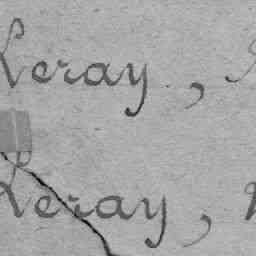 Leray ,
Leray ,